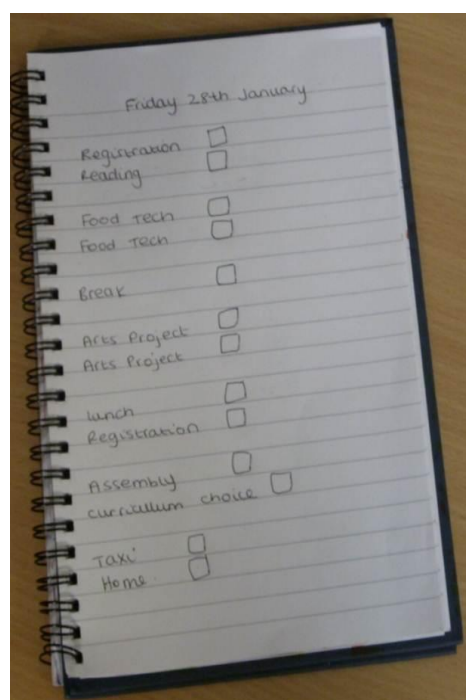 Friday 28th January
Registration
Reading
Food Tech
Food Tech
Break
Arts Project
Arts Project
lunch
Registration
Assembly
curriculum choice
Taxi
Home